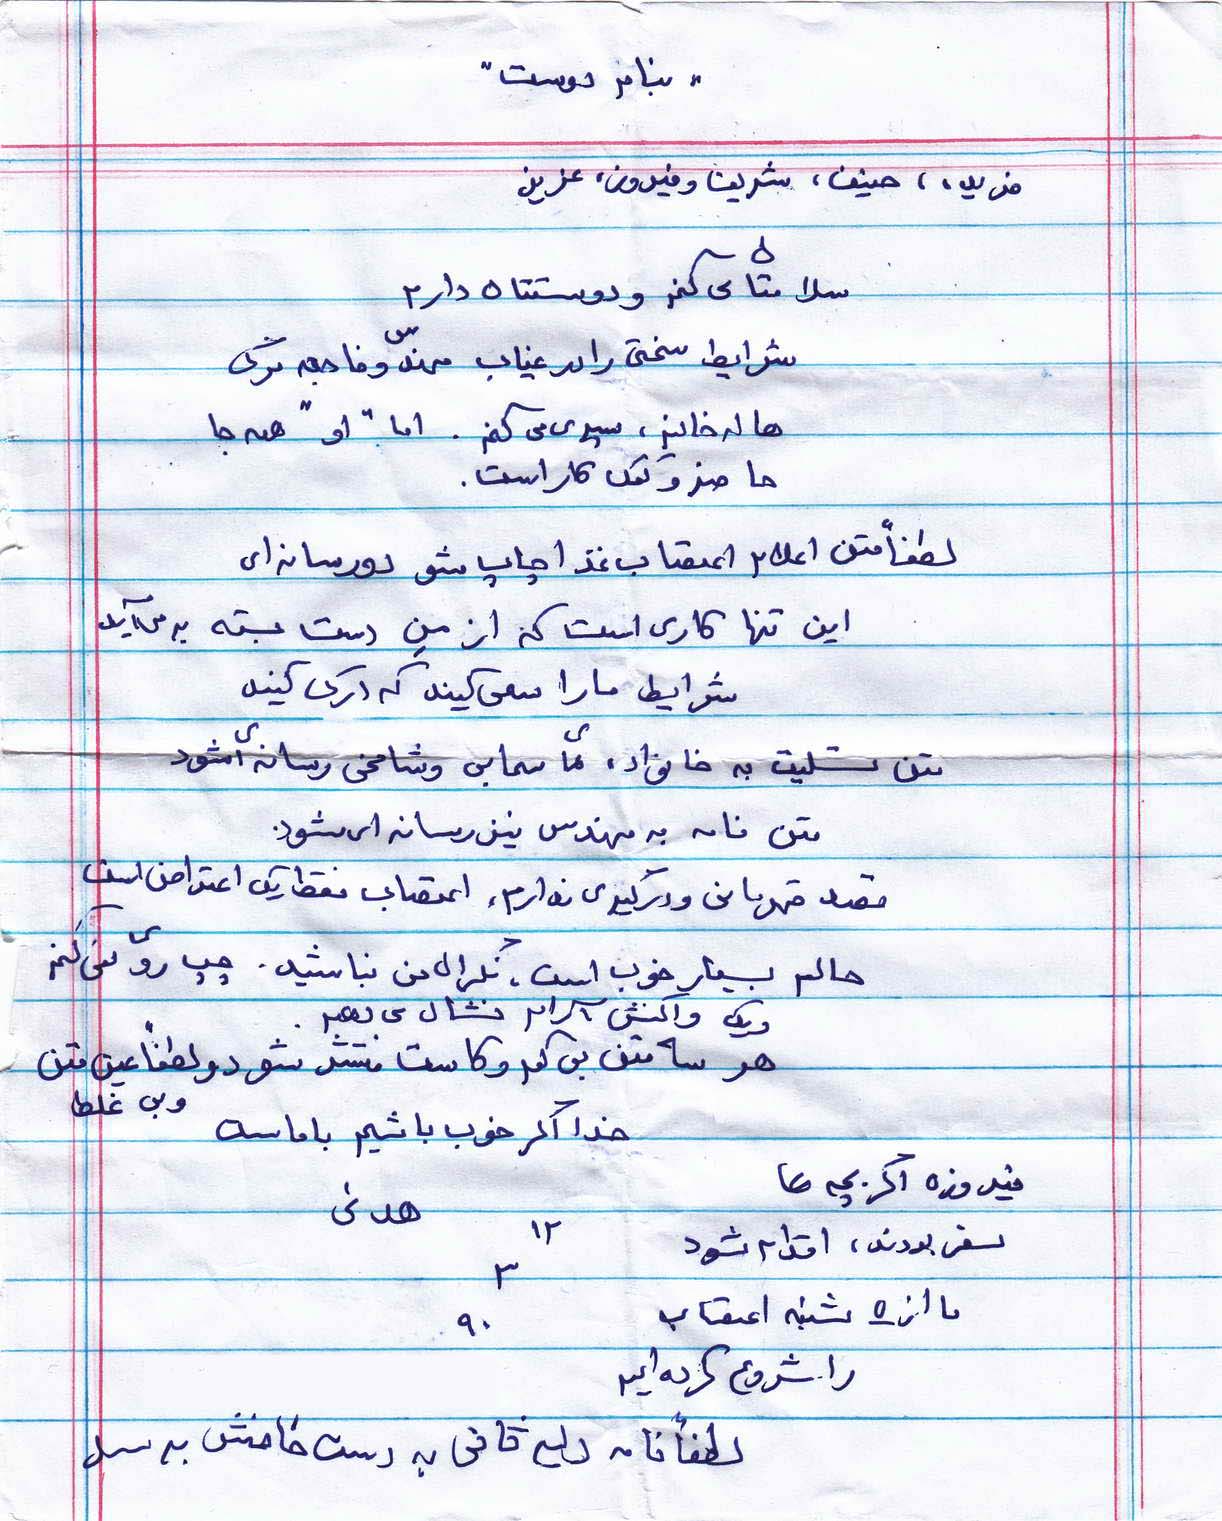 "بنام دوست"
فریده، حنیف، شریف و فیروزه عزیز
سلامتان می کنم و دوستتان دارم
شرایط سختی را در غیاب مهندس و فاجعه ترک
هاله خانم، سپری می کنم. اما "او" همه جا
حاضر و کمک کار است.
لطفاً متن اعلام اعتصاب غذا چاپ شود و رسانه ای
این تنها کاری است که از من دست بسته بر می آید
شرایط ما را سعی کنید که درک کنید
متن تسلیت به خانواده های سحابی و شامخی رسانه ای شود
متن نامه به مهندس نیز رسانه ای شود.
قصد قهرمانی و درگیری ندارم، اعتصاب فقط یک اعتراض است
حالم بسیار خوب است، نگران من نباشید. چپ روی نمی کنم
و یک واکنش آرام نشان می دهم.
هر سه متن بی کم و کاست منتشر شود و لطفاً عین متن
و بی غلط
خدا اگر خوب باشیم با ماست
فیروزه اگر بچه ها
سفر بودند، اقدام شود
ما از ۵ شنبه اعتصاب
را شروع کرده ایم
هدی
۱۲
۳
۹۰
لطفاً نامه دلیر ثانی به دست خانمش برسد